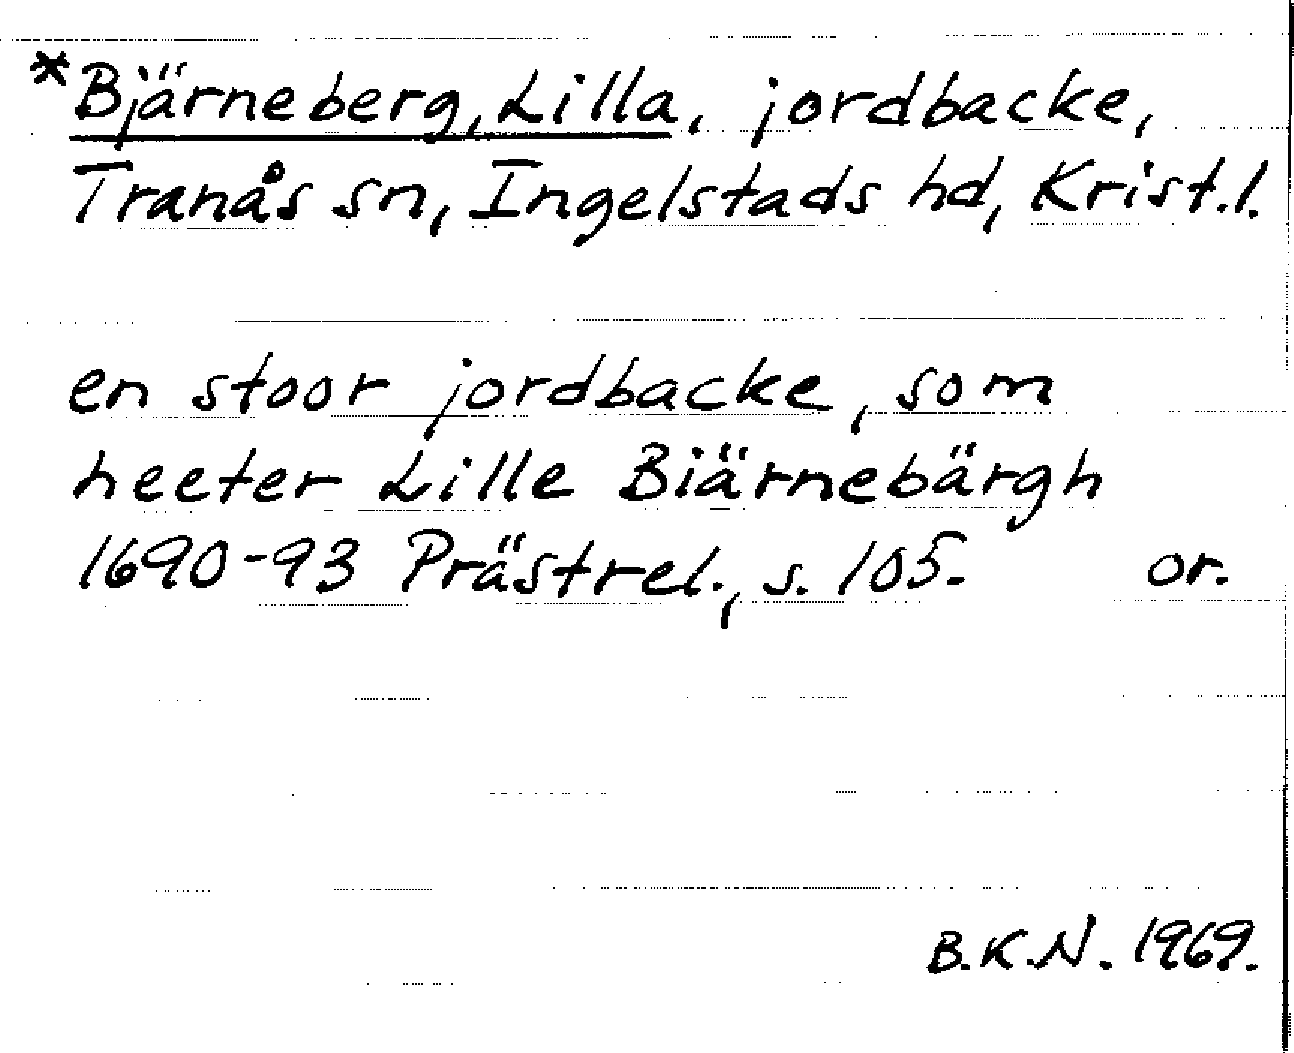 *Bjärneberg, Lilla, jordbacke,
Tranås sn, Ingelstads hd, Krist.l.
en stoor jordbacke, som
heeter Lille Biärnebärgh
1690-93 Prästrel., s. 105. or.
B.K.N. 1969.